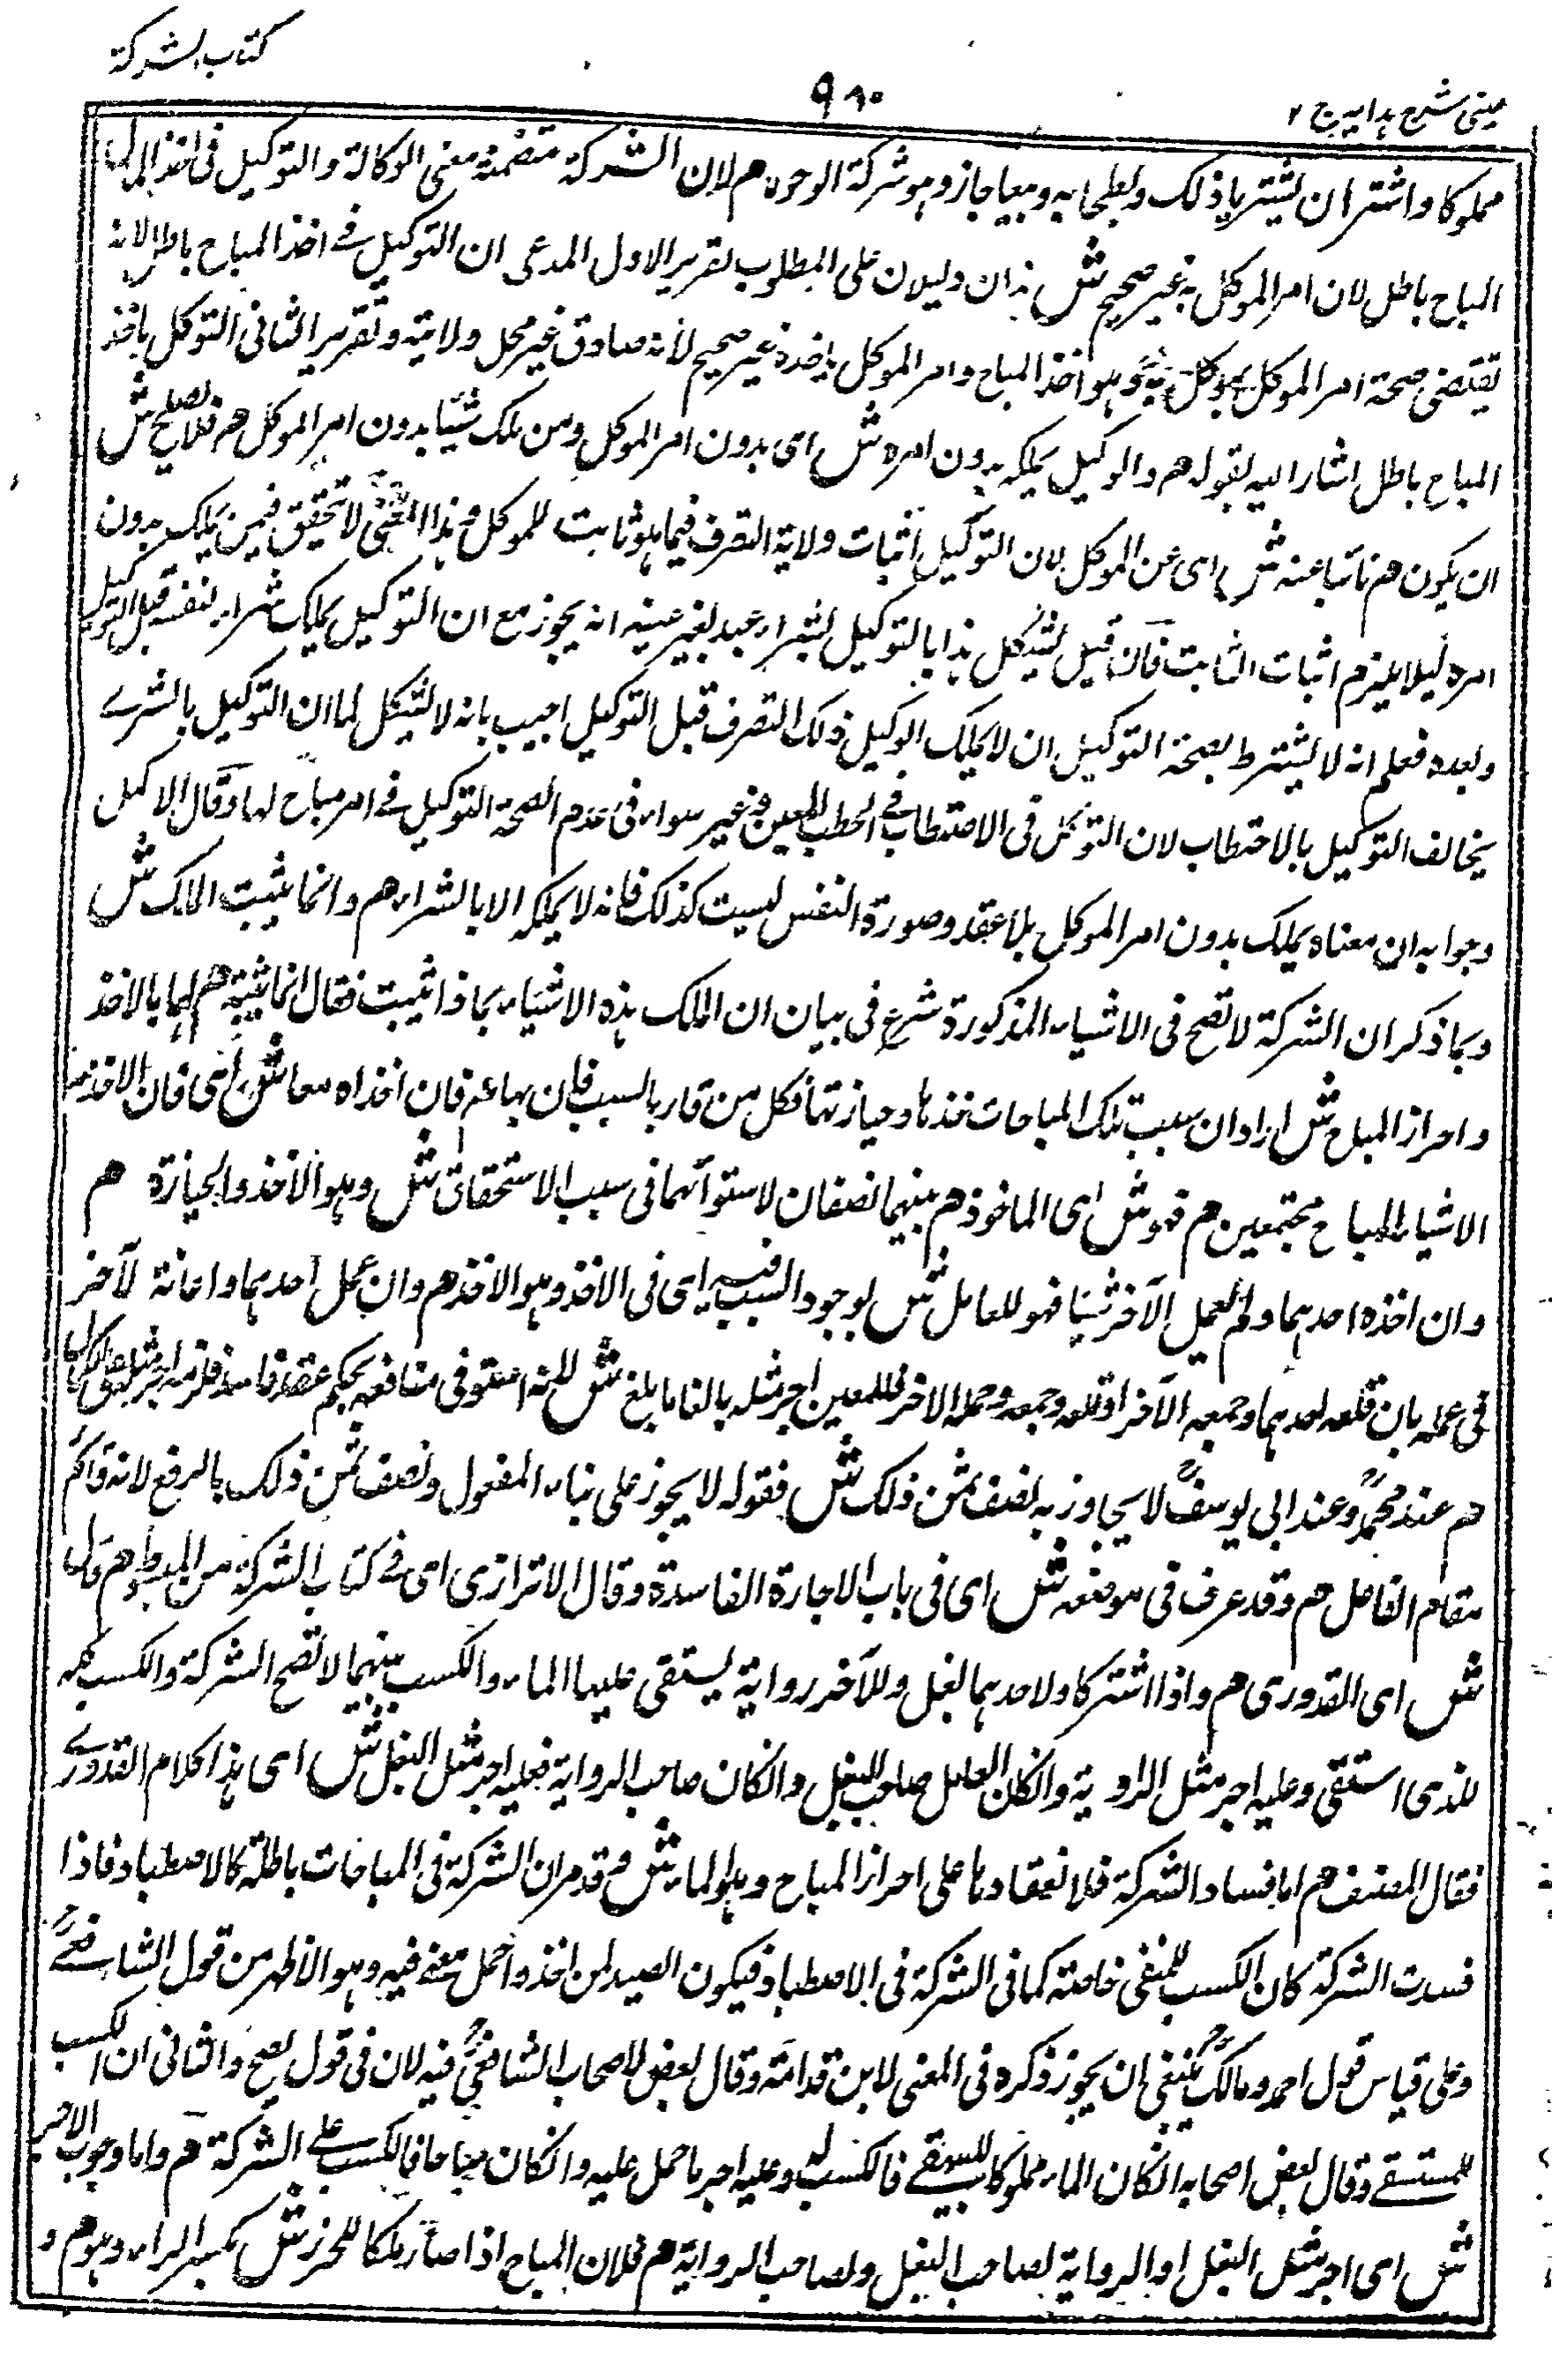 كتاب الشركة
٩١٠
عینی شرح ہدایہ ج ٢
مملوكا واشتركا ان يشتريا ذلك ويطبخا به ويبيعا جاز وهو شركة الوجوه هم لان الشركة متضمنة معنى الوكالة والتوكيل فى اخذ المال
المباح باطل لان امر الموكل به غير صحيح ش هذان دليلان على المطلوب تقرير الاول المدعى ان التوكيل فے اخذ المباح باطل لانه
يقتضى صحة امر الموكل بما وكل به وهو اخذ المباح وامر الموكل باخذه غير صحيح لانه صادق غير محل ولايته وتقرير الثانى التوكل باخذ
المباح باطل اشار اليه بقوله هم والوكيل يملكه بدون امره ش اى بدون امر الموكل ومن ملك شيئا بدون امر الموكل هم فلا يصلح ش
ان يكون هم نائبا عنه ش اى عن الموكل لان التوكيل اثبات ولاية التصرف فيما هو ثابت للموكل وهذا المعنى لا تحقيق فيمن يملك بدون
امره ليلا يلزم اثبات الثابت فان قيل يشكل هذا بالتوكيل بشراء عبد بغير عينه انه يجوز مع ان التوكيل يملك شراء لنفسه قبل التوكيل
وبعده فعلم انه لا يشترط بصحة التوكيل ان لا يملك الوكيل ذلك التصرف قبل التوكيل اجيب بانه لا يشكل لما ان التوكيل بالشرے
يخالف التوكيل بالاحتطاب لان التوكل فى الاحتطاب فے الحطب المعين وغير سواء فى عدم الصحة التوكيل فے امر مباح لهما وقال الاكمل
وجوابه ان معناه يملك بدون امر الموكل بلا عقد وصورة النفس ليست كذلك فانه لا يملكه الا بالشراء هم وانما يثبت الملك ش
وبما ذكر ان الشركة لا تصح فى الاشياء المذكورة شرع فى بيان ان الملك هذه الاشياء بماذا يثبت فقال انما يثبت هم لهما بالاخذ
واحراز المباح ش اراد ان سبب تلك المباحات اخذها وحيازتها فكل من قار بالسبب فان بهاء هم فان اخذاه معا ش اى فان الاخذ
الاشياء المباح مجتمعين هم فهو ش اى الماخوذ هم بينهما نصفان لاستوائهما فى سبب الاستحقاق ش وهو الاخذ والحيازة هم
وان اخذه احدهما ولم يعمل الآخر شيئا فهو للعامل ش لوجود السبب فيه اى فى الاخذ وهو الاخذ هم وان عمل احدهما واعانة لآخر
فى عمله بان قلعه احدهما وجمعه الآخر او قلعه وجمعه وحمله الاخر فللمعين اجر مثله بالغا ما بلغ ش لانه استوفى منافعه بحكم عقد فاسد فلزمه اجر مثله
هم عند محمدؒ وعند ابى يوسفؒ لا يجاوز به نصف ثمن ذلك ش فقوله لا يجوز على بناء المفعول ونصف ثمن ذلك بالرفع لانه قائم
مقام الفاعل هم وقد عرف فى موضعه ش اى فى باب الاجارة الفاسدة وقال الاترازى اى فے كتاب الشركة من المبسوط هم قال
ش اى القدورى هم واذا اشتركا ولاحدهما بغل وللآخر رواية يستقى عليها الماء والكسب بينهما لا تصح الشركة والكسب كله
للذى استقى وعليه اجر مثل الراوية وانكان العامل صاحب البغل وانكان صاحب الرواية فعليه اجر مثل البغل ش اى هذا كلام القدورے
فقال المصنف هم اما فساد الشركة فلانعقادها على احراز المباح وهو الماء ش وقد مر ان الشركة فى المباحات باطلة كالاصطياد فاذا
فسدت الشركة كان الكسب للمنفى خاصة كما فى الشركة فى الاصطياد فيكون الصيد لمن اخذ واحمل متعة فيه وهو الاظهر من قول الشافعےؒ
وعلى قياس قول احمد ومالكؒ ينبغى ان يجوز ذكره فى المغنى لابن قدامة وقال بعض لاصحاب الشافعىؒ فيه لان فى قول يصح والثانى ان الكسب
للمستسقے وقال بعض اصحابه انكان الماء مملوكا للمستقے فالكسب له وعليه اجر ما حمل عليه وانكان مباحا فالكسب علے الشركة هم واما وجوب الاجر
ش اى اجر مثل البغل او الرواية لصاحب البغل ولصاحب الرواية هم فلان المباح اذا صار ملكا للمحرز ش بكسر الراء وهو هم و